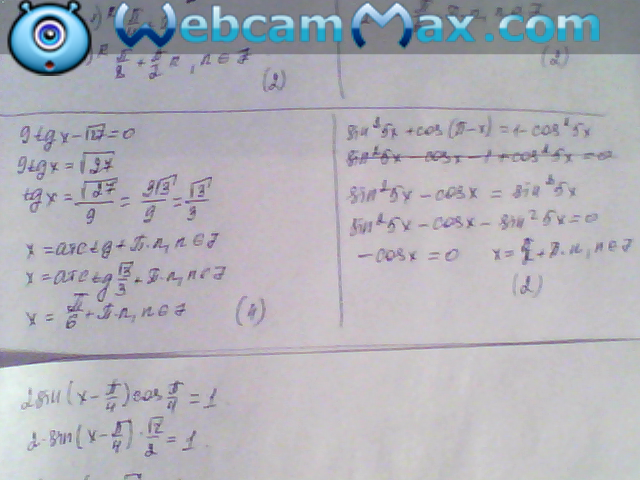 WebcamMax.com
π/8 + π/2 n, n∈Z
(2)
(2)
9tgx-√27=0
9tgx=√27
tgx=√27/9=3√3/9=√3/3
x=arctg+π·n, n∈Z
x=arctg√3/3+π·n, n∈Z
x=π/6+π·n, n∈Z (4)
sin²5x+cos(π-x)=1-cos²5x
sin²5x-cosx-1+cos²5x=0
sin²5x-cosx=sin²5x
sin²5x-cosx-sin²5x=0
-cosx=0 x=π/2+π·n, n∈Z
(2)
2sin(x-π/4)cosπ/4=1
2·sin(x-π/4)·√2/2=1